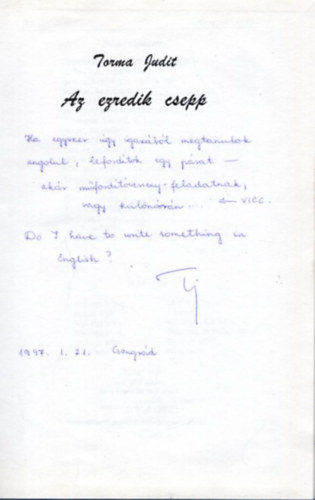 Torma Judit
Az ezredik csepp
Ha egyszer úgy igazából megtanulok
angolul, lefordítok egy párat —
akár műfordítóverseny-feladatnak,
vagy ... VICC.
Do I have to write something in
English?
TJ
1997. 1. 21. Csongrád